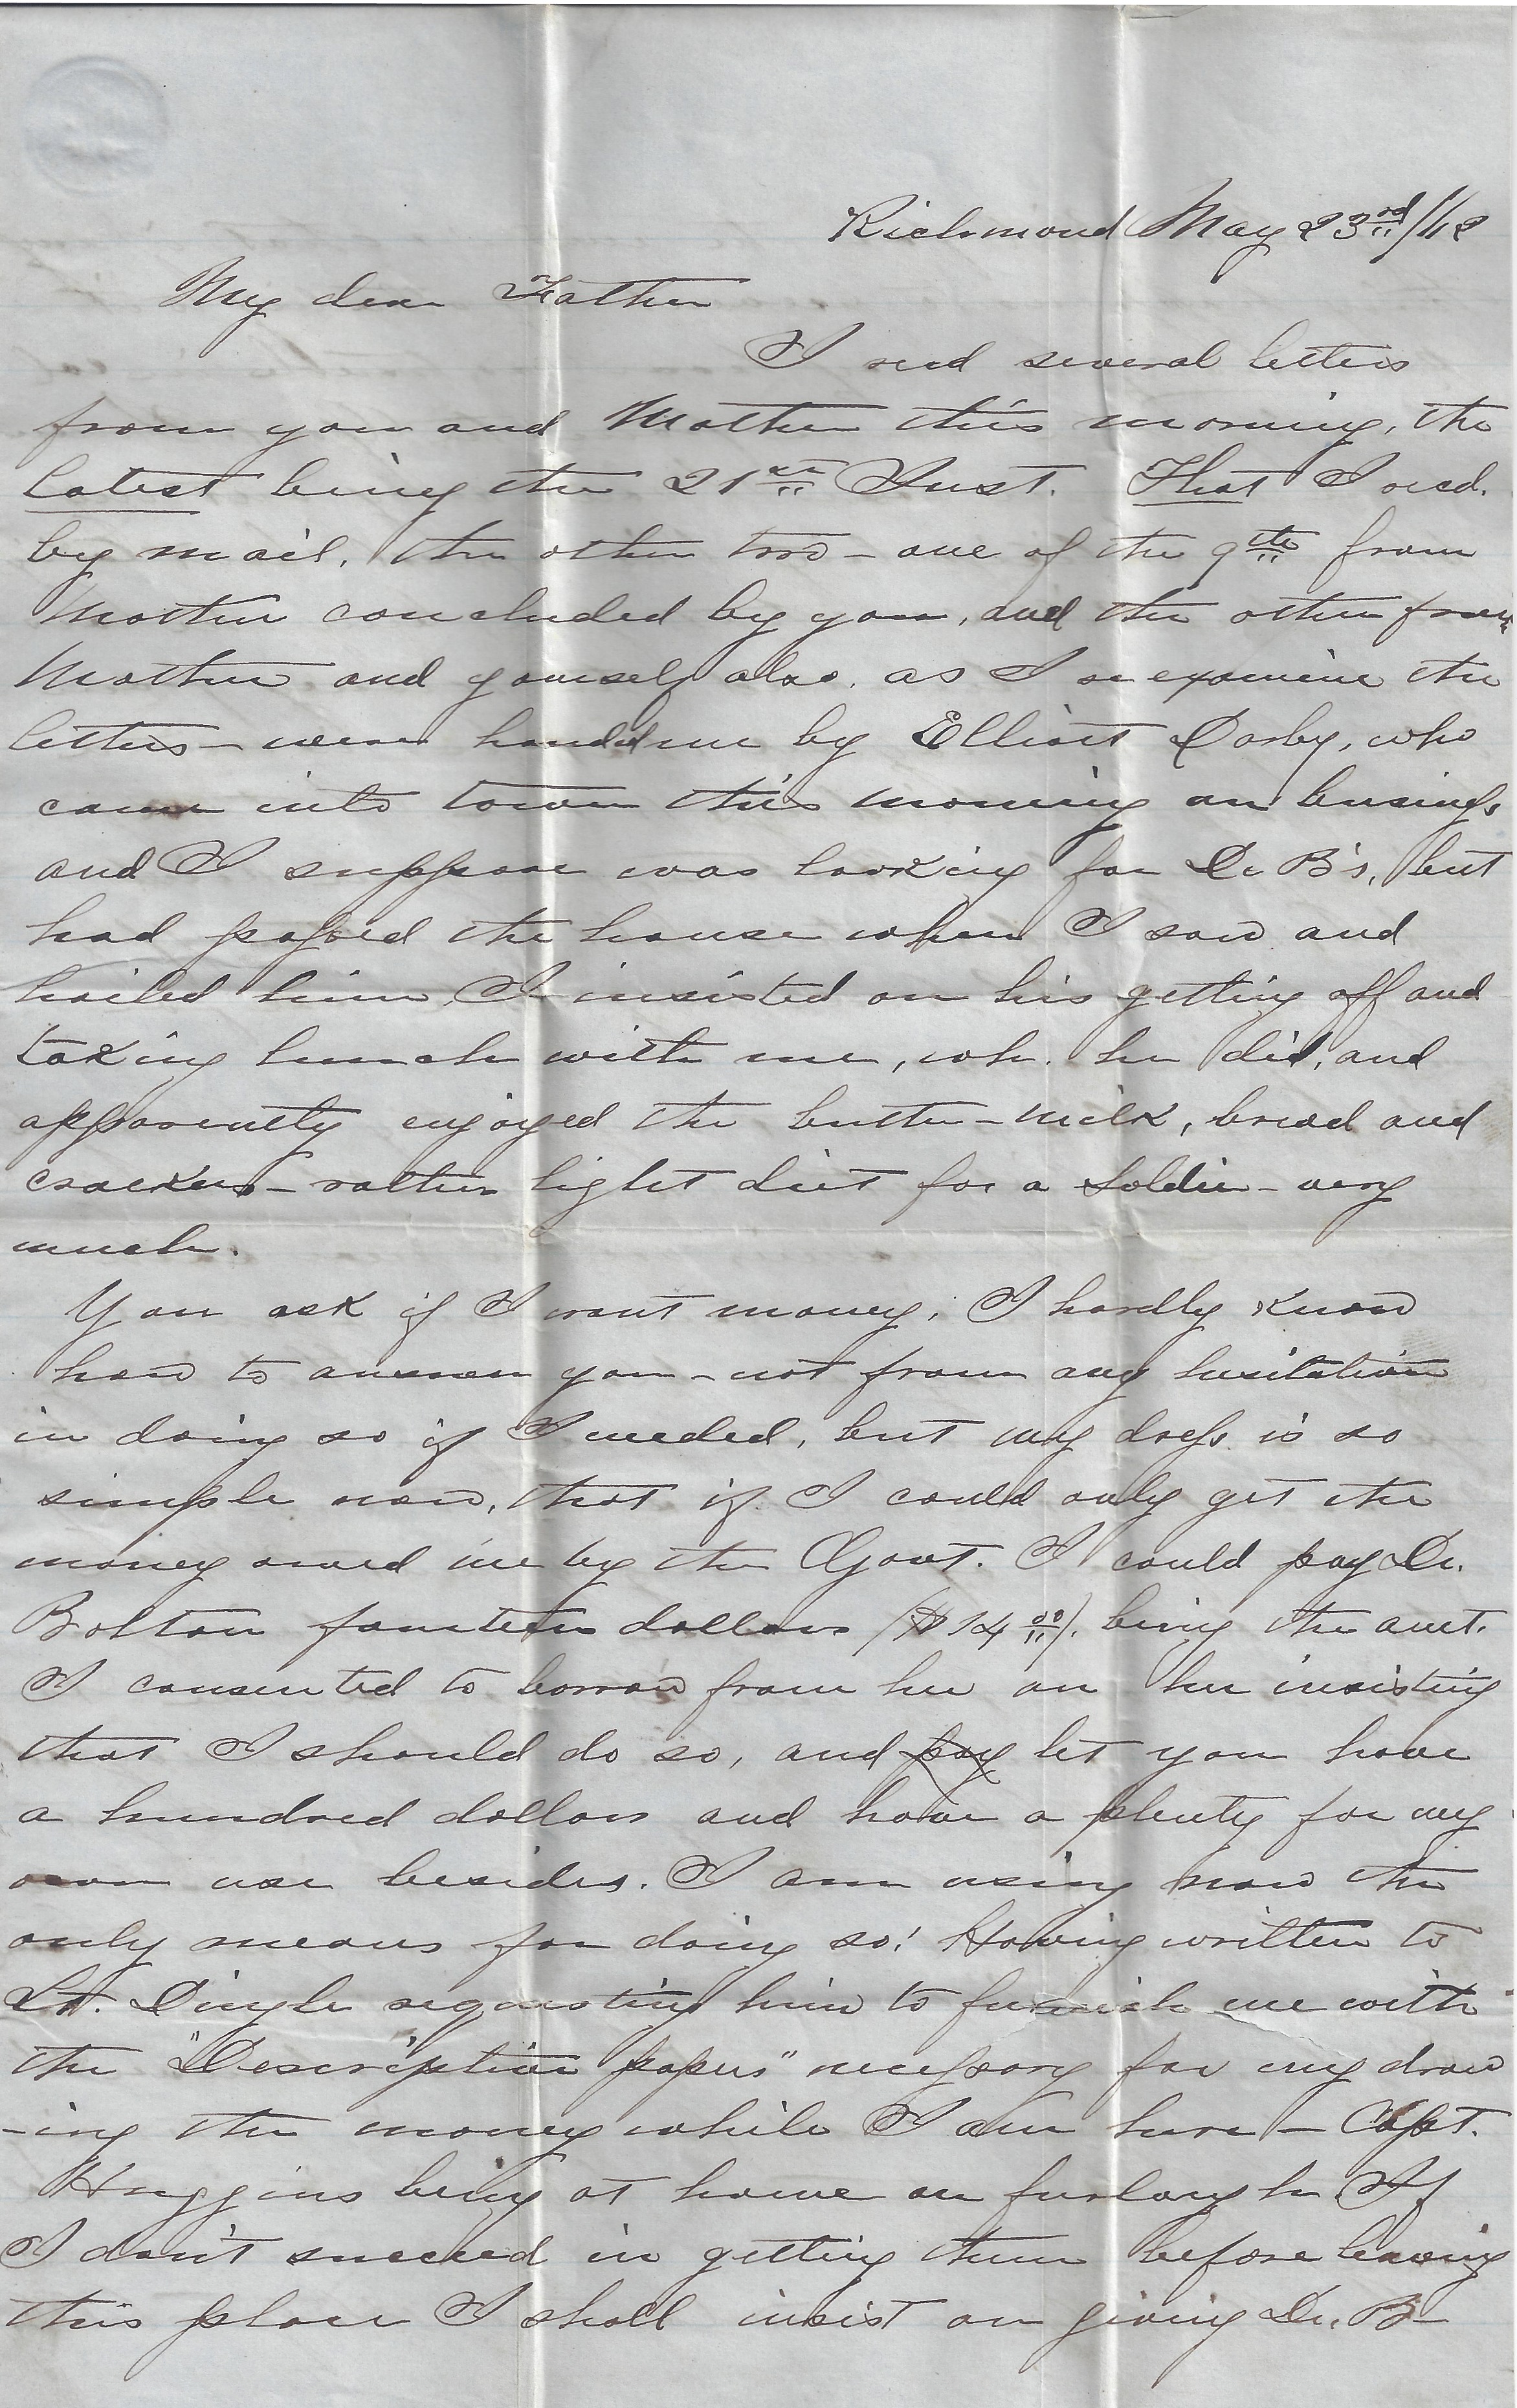 Richmond May 23rd/62
My dear Father
I recd several letters
from you and Mother this morning, the
latest being the 21st Inst. That I recd.
by mail, the other two – one of the 9th from
Mother concluded by you, and the other from
Mother and yourself also, as I re examine the
letters – were handed me by Elliott Darby, who
came into town this morning on business
and I suppose was looking for Dr B's, but
had passed the house when I saw and
hailed him, I insisted on his getting off and
taking lunch with me, wh. he did, and
apparently enjoyed the butter-milk, bread and
crackers – rather light diet for a Soldier – very
much.
You ask if I want money, I hardly know
how to answer you – not from any hesitation
in doing so if I needed, but my dress is so
simple now, that if I could only get the
money owed me by the Govt. I could pay Dr.
Bolton fourteen dollars ($14.00), being the amt.
I consented to borrow from her on her insisting
that I should do so, and pay let you have
a hundred dollars and have a plenty for my
own use besides. I am using now the
only means for doing so! Having written to
Lt. Dingle requesting him to furnish me with
the "Description papers" necessary for my draw
-ing the money while I am here – Capt.
Huggins being at home on furlough. If
I don't succeed in getting them before leaving
this place I shall insist on giving Dr. B–